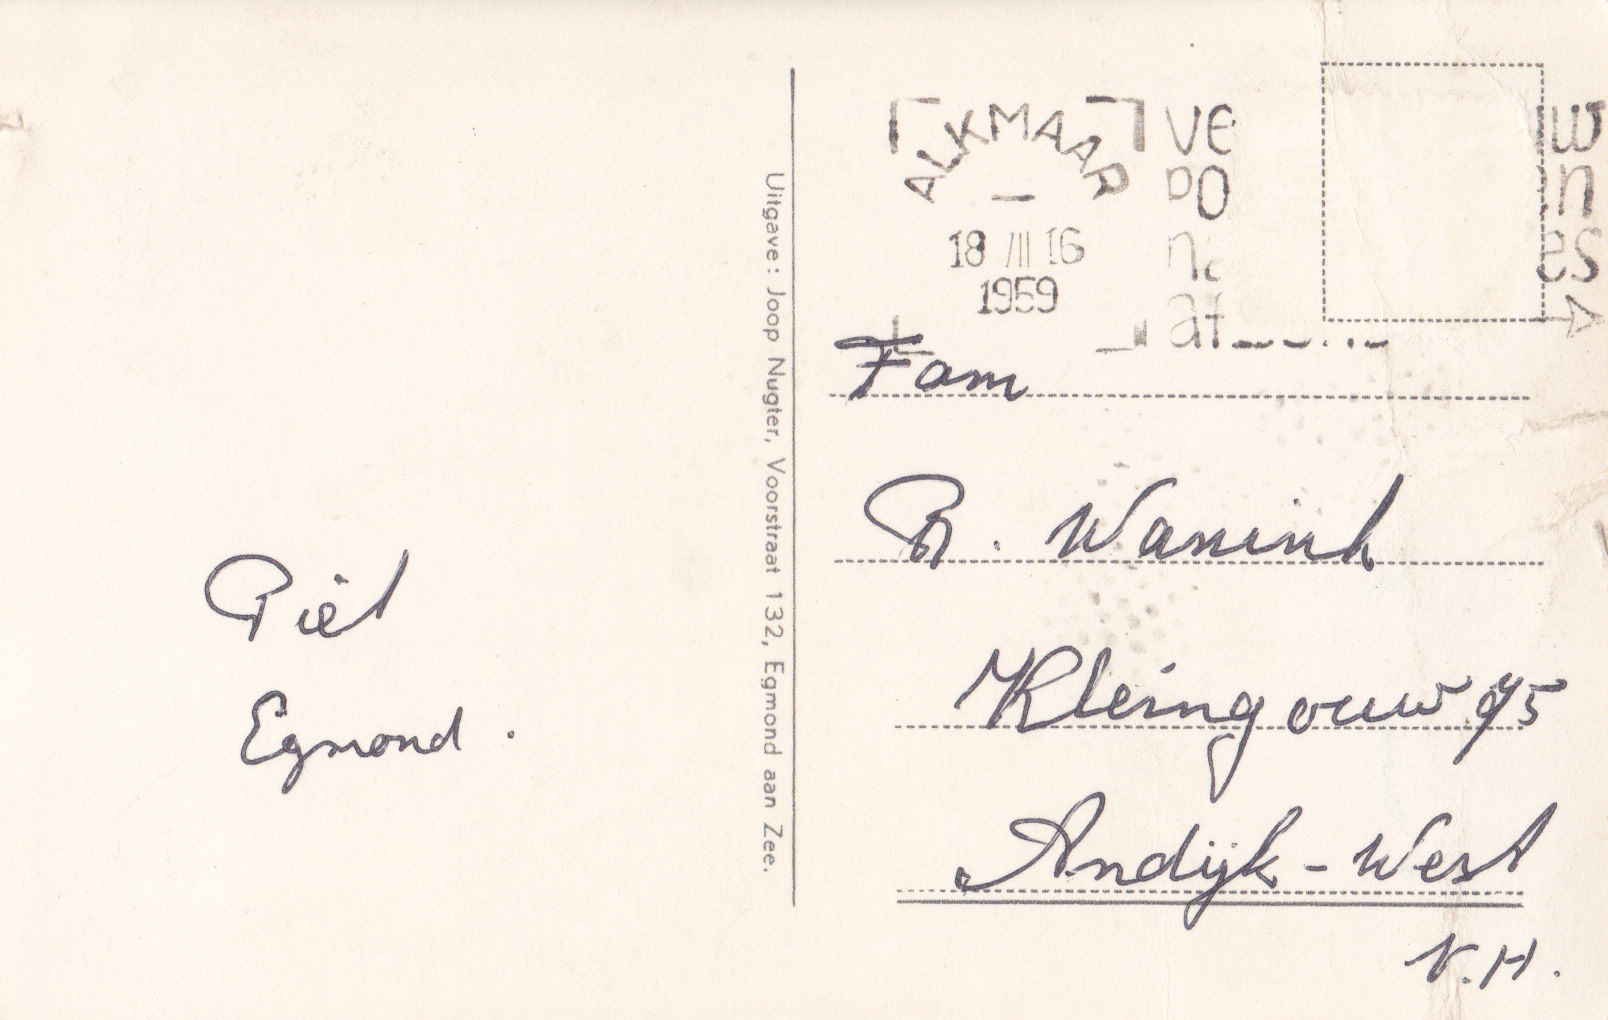 Piet
Egmond.
Uitgave: Joop Nugter, Voorstraat 132, Egmond aan Zee.
ALKMAAR
18 III 16
1959
Fam
Wanink
Kleingouw 95
Andijk-West
N.H.